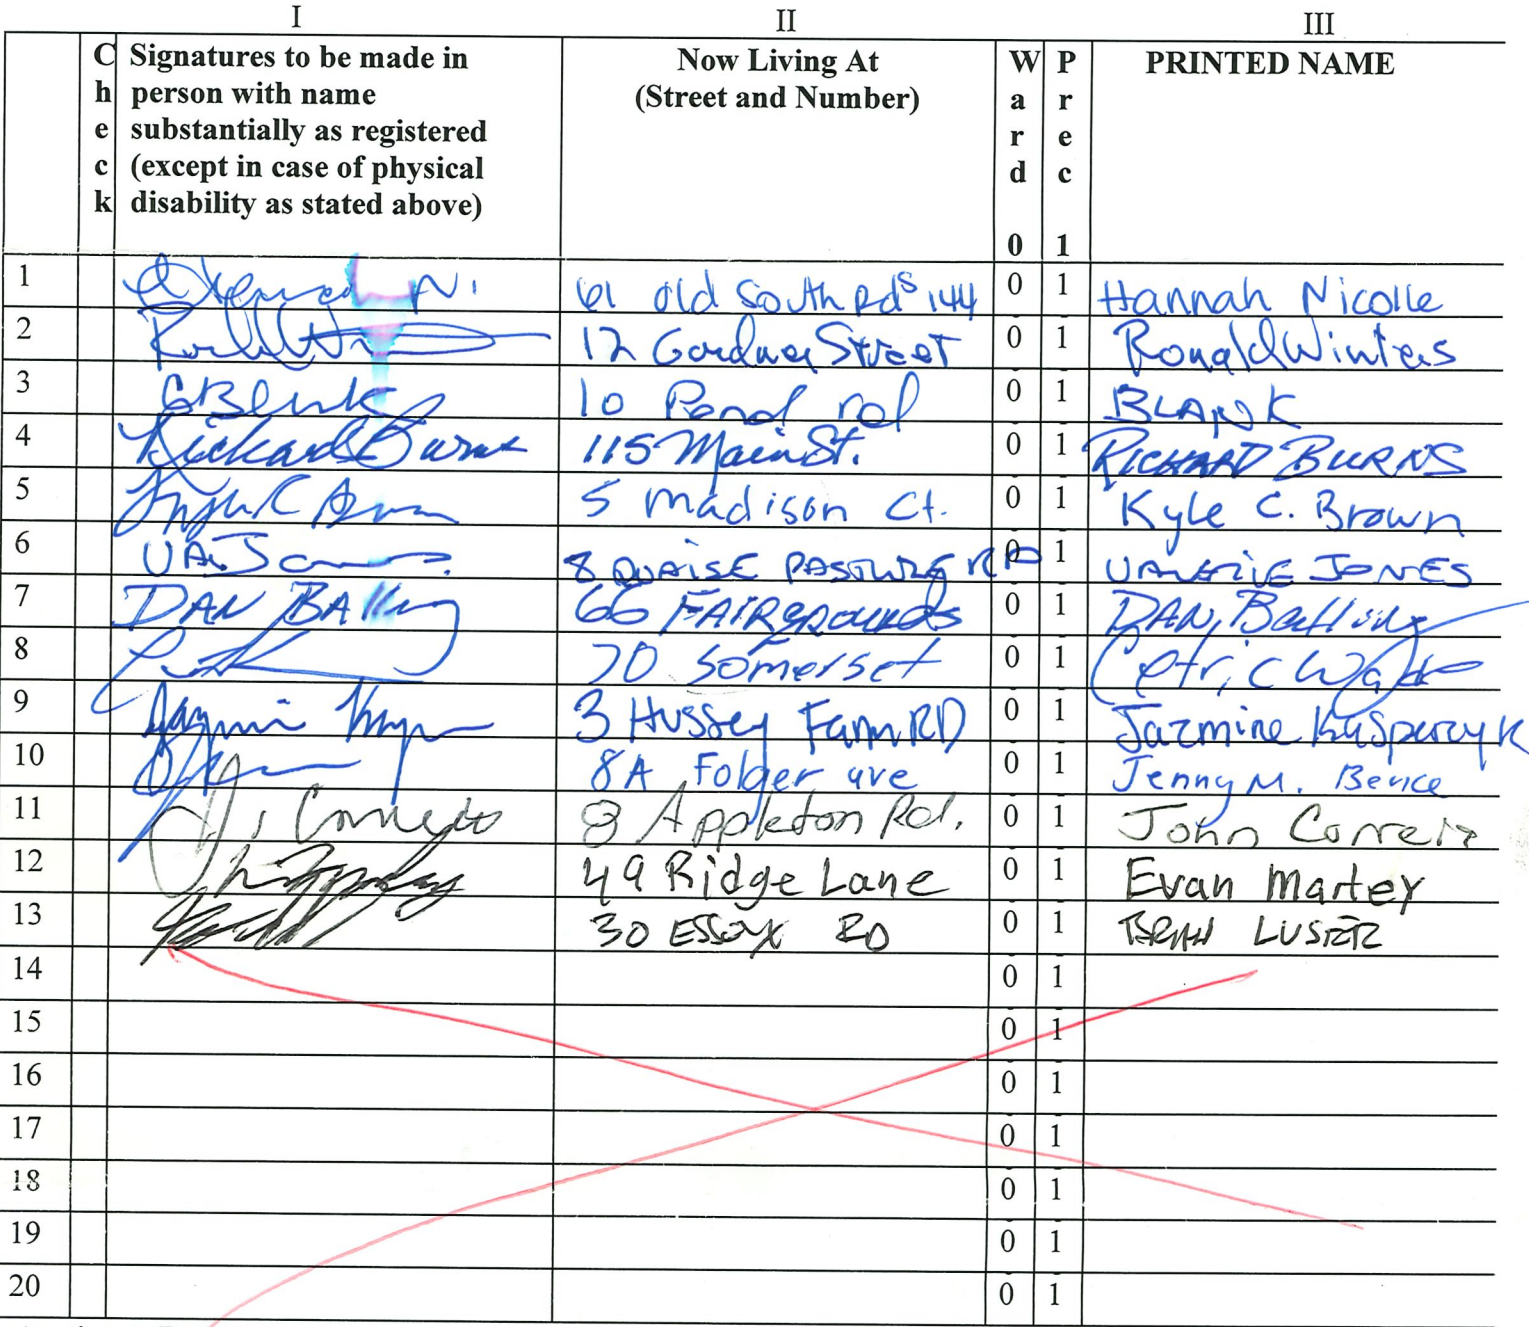 I II III
Check Signatures to be made in person with name substantially as registered (except in case of physical disability as stated above) Now Living At (Street and Number) Ward 0 Prec 1 PRINTED NAME
1 61 Old South Rd 144 0 1 Hannah Nicolle
2 12 Gardner Street 0 1 Ronald Winters
3 10 Pond rd 0 1 BLANK
4 Richard Burns 115 Main St. 0 1 RICHARD BURNS
5 5 Madison Ct. 0 1 Kyle C. Brown
6 8 QUAISE PASTURE RD 0 1 VALERIE JONES
7 DAN BAlling 66 FAIRgROUNds 0 1 DAN Balling
8 70 Somerset 0 1
9 3 Hussey Farm RD 0 1 Jazmine
10 8A Folger ave 0 1 Jenny M. Bence
11 8 Appleton Rd. 0 1 John Correia
12 49 Ridge Lane 0 1 Evan Martey
13 30 ESSEX RD 0 1
14 0 1
15 0 1
16 0 1
17 0 1
18 0 1
19 0 1
20 0 1